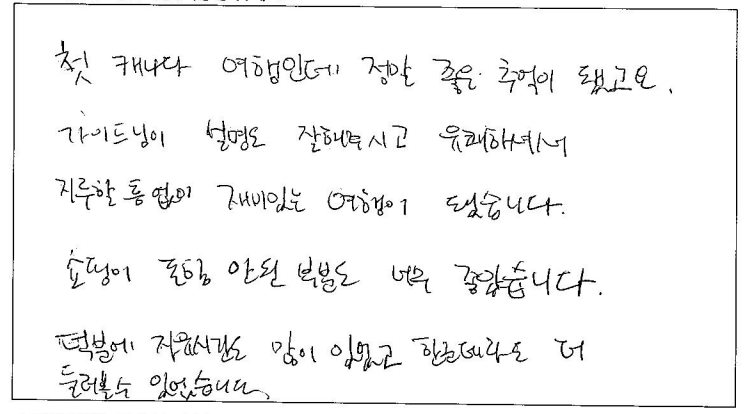 첫 캐나다 여행인데 정말 좋은 추억이 됐고요.
가이드님이 설명도 잘해주시고 유쾌하셔서
지루할 틈 없이 재미있는 여행이 됐습니다.
쇼핑이 포함 안된 부분도 너무 좋았습니다.
덕분에 자유시간도 많이 있었고 한군데라도 더
둘러볼수 있었습니다.